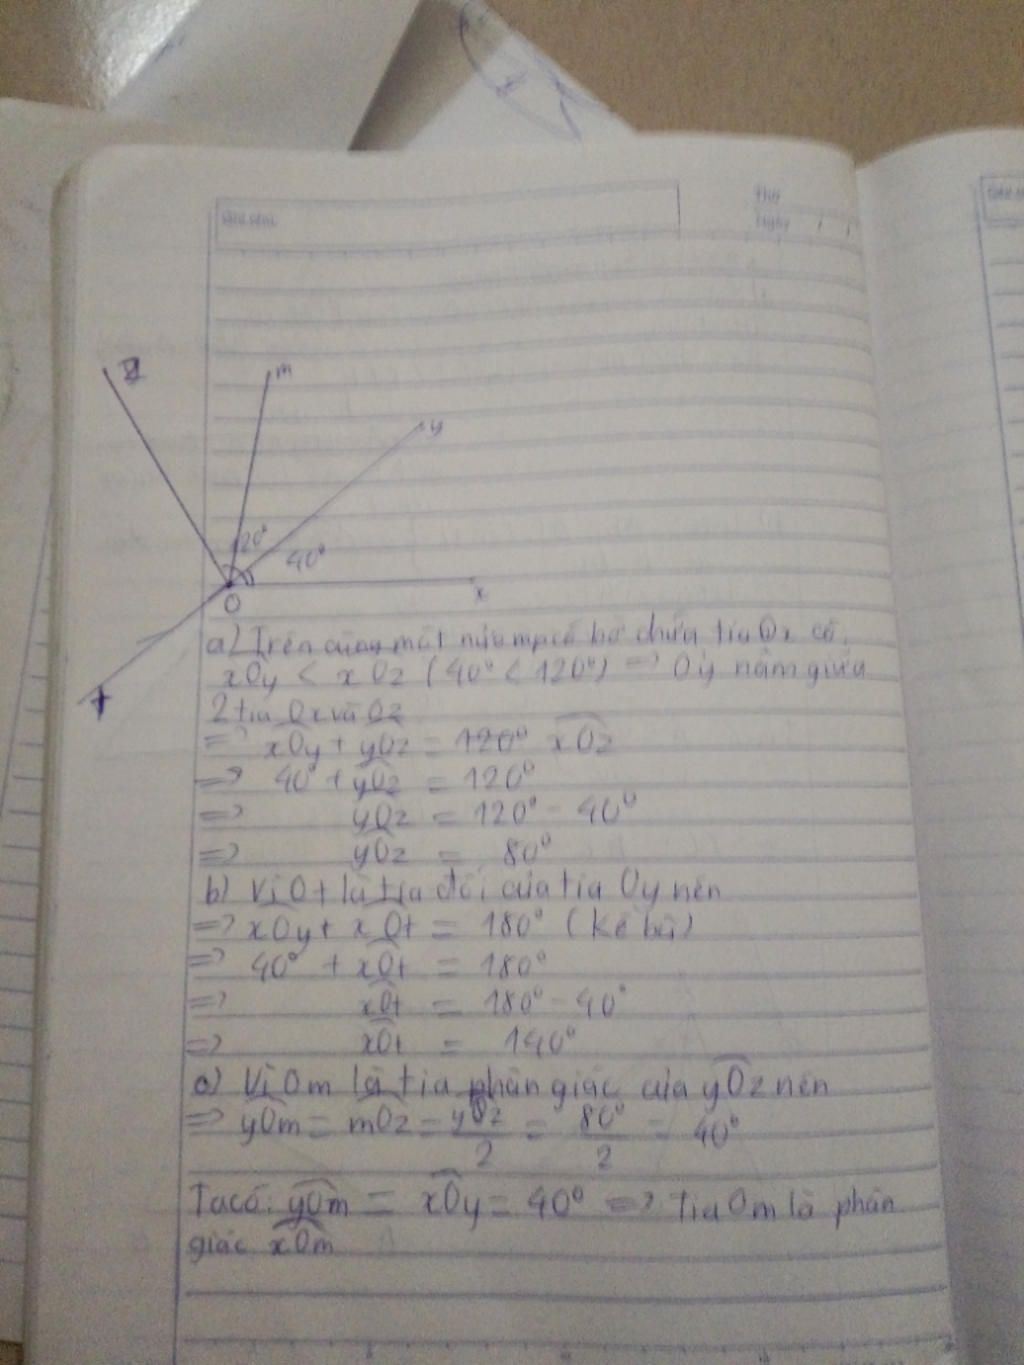 Thứ
Ngày / /
z
m
y
120°
40°
x
O
t
a) Trên cùng một nửa mp có bờ chứa tia Ox có.
xOy < xOz (40° < 120°) => Oy nằm giữa
2 tia Ox và Oz
=> xOy + yOz = 120° xOz
=> 40° + yOz = 120°
=> yOz = 120° - 40°
=> yOz = 80°
b) Vì Ot là tia đối của tia Oy nên
=> xOy + xOt = 180° (kề bù)
=> 40° + xOt = 180°
=> xOt = 180° - 40°
=> xOt = 140°
c) Vì Om là tia phân giác của yOz nên
=> yOm = mOz = yOz/2 = 80°/2 = 40°
Ta có: yOm = xOy = 40° => Tia Om là phân
giác xOm